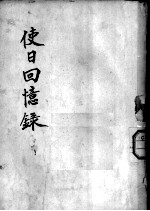 使日回憶錄